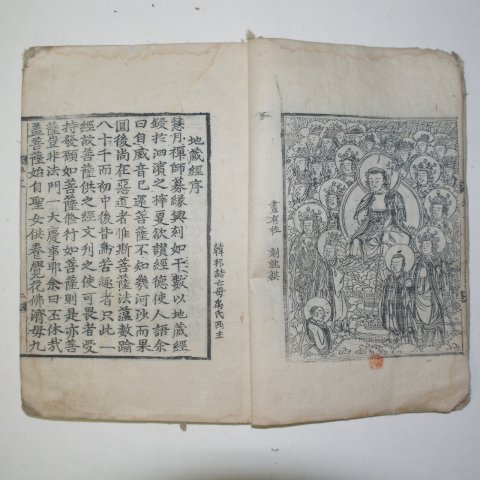 畫有性 刻詭洪
韓邦喆亡母馬氏兩主
地藏經序
慧月禪師募緣興刻如干數以地藏經
鋟於泗濱之梓夏欲讃經德使人語余
曰自威音已還菩薩不知幾河沙而果
圓後尚在惡道者惟斯菩薩法蘊數踰
八十千而初中後皆爲苦趣者只此一
經故菩薩供之經文刋之使可畏者受
持發願如菩薩修行如菩薩則是亦菩
薩豈非法門一大慶事耶余曰丕休哉
盖菩薩始自聖女供養覺花佛濟母九